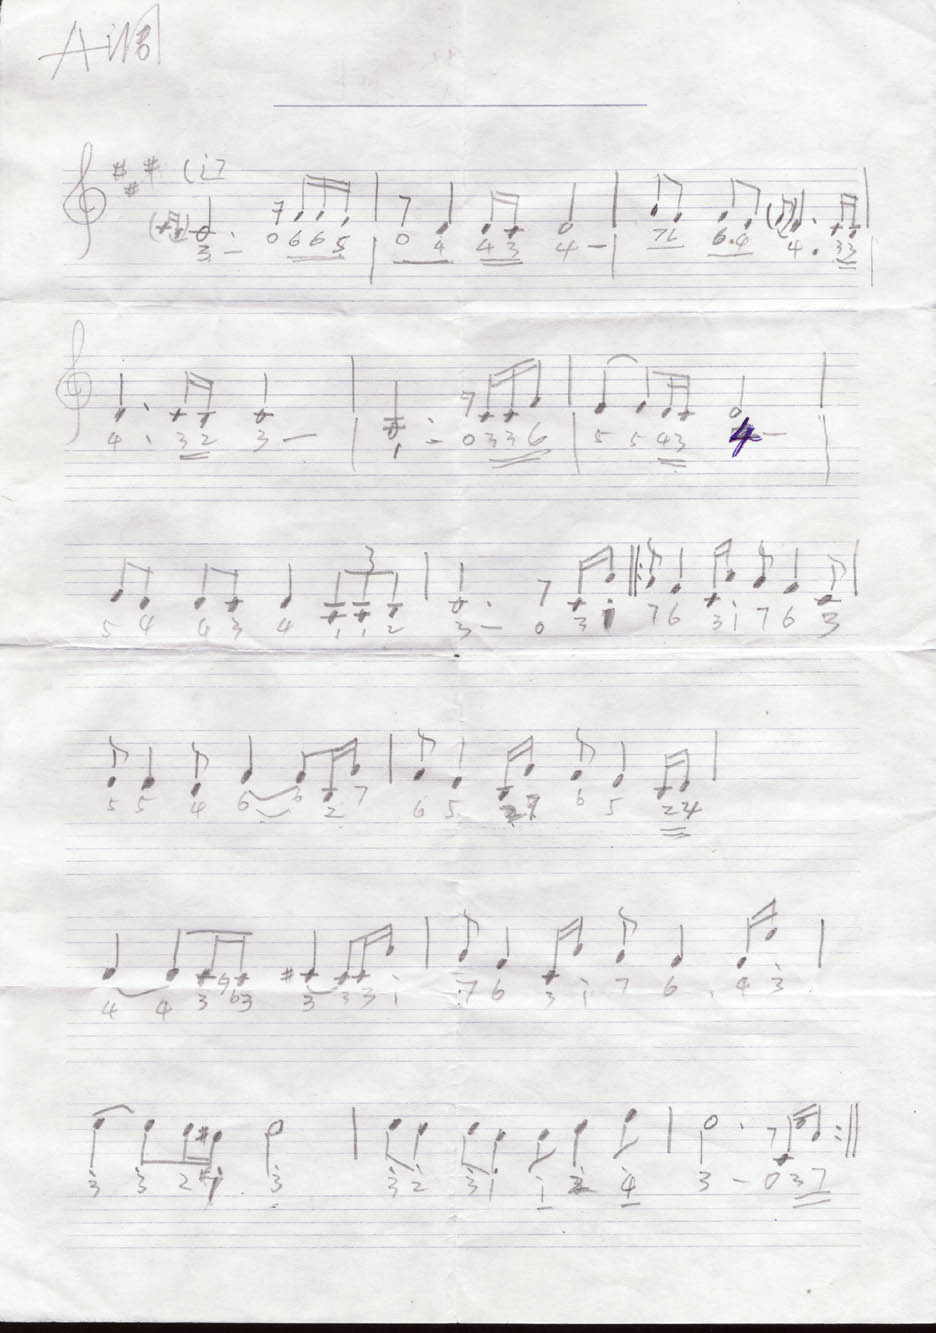 A调
3 · — 0 6 6 5 | 0 4 4 3 4 — | 7 6 6 4 4 · 3 3
4 · 3 2 3 — | 1 · — 0 3 3 6 | 5 5 4 3 4 — |
3
5 4 4 3 4 1 1 2 | 3 · — 0 3 i 7 6 3 i 7 6 3
5 5 4 6 6 2 7 | 6 5 2 7 6 5 2 4 |
4 4 3 3 3 3 3 i | 7 6 3 i 7 6 4 3 |
3 3 2 #1 3 | 3 2 3 i i 2 4 | 3 — 0 3 7